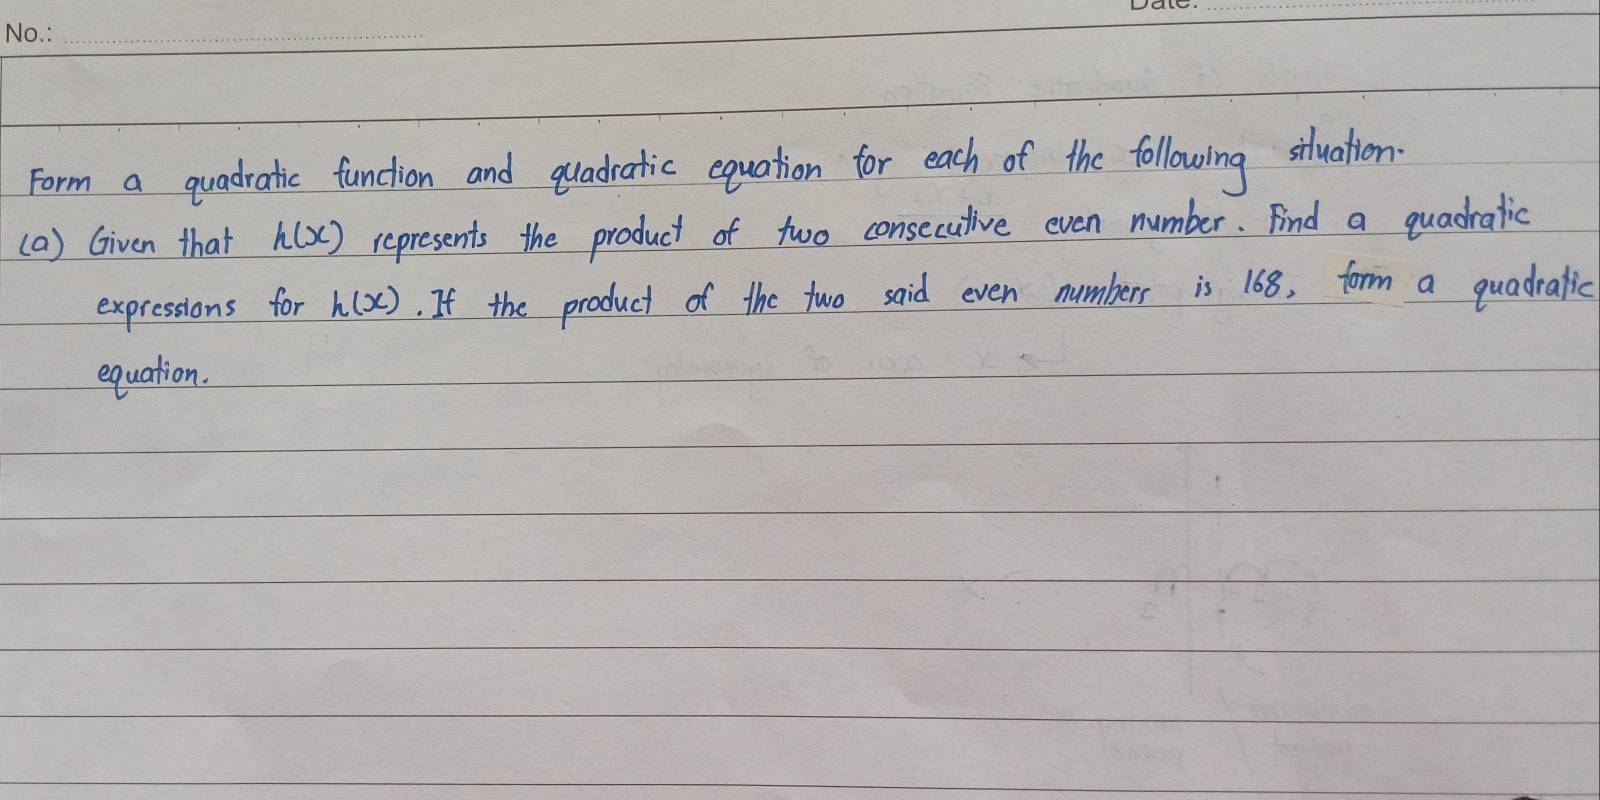 Date:
No.:
Form a quadratic function and quadratic equation for each of the following situation.
(a) Given that h(x) represents the product of two consecutive even number. Find a quadratic
expressions for h(x). If the product of the two said even numbers is 168, form a quadratic
equation.